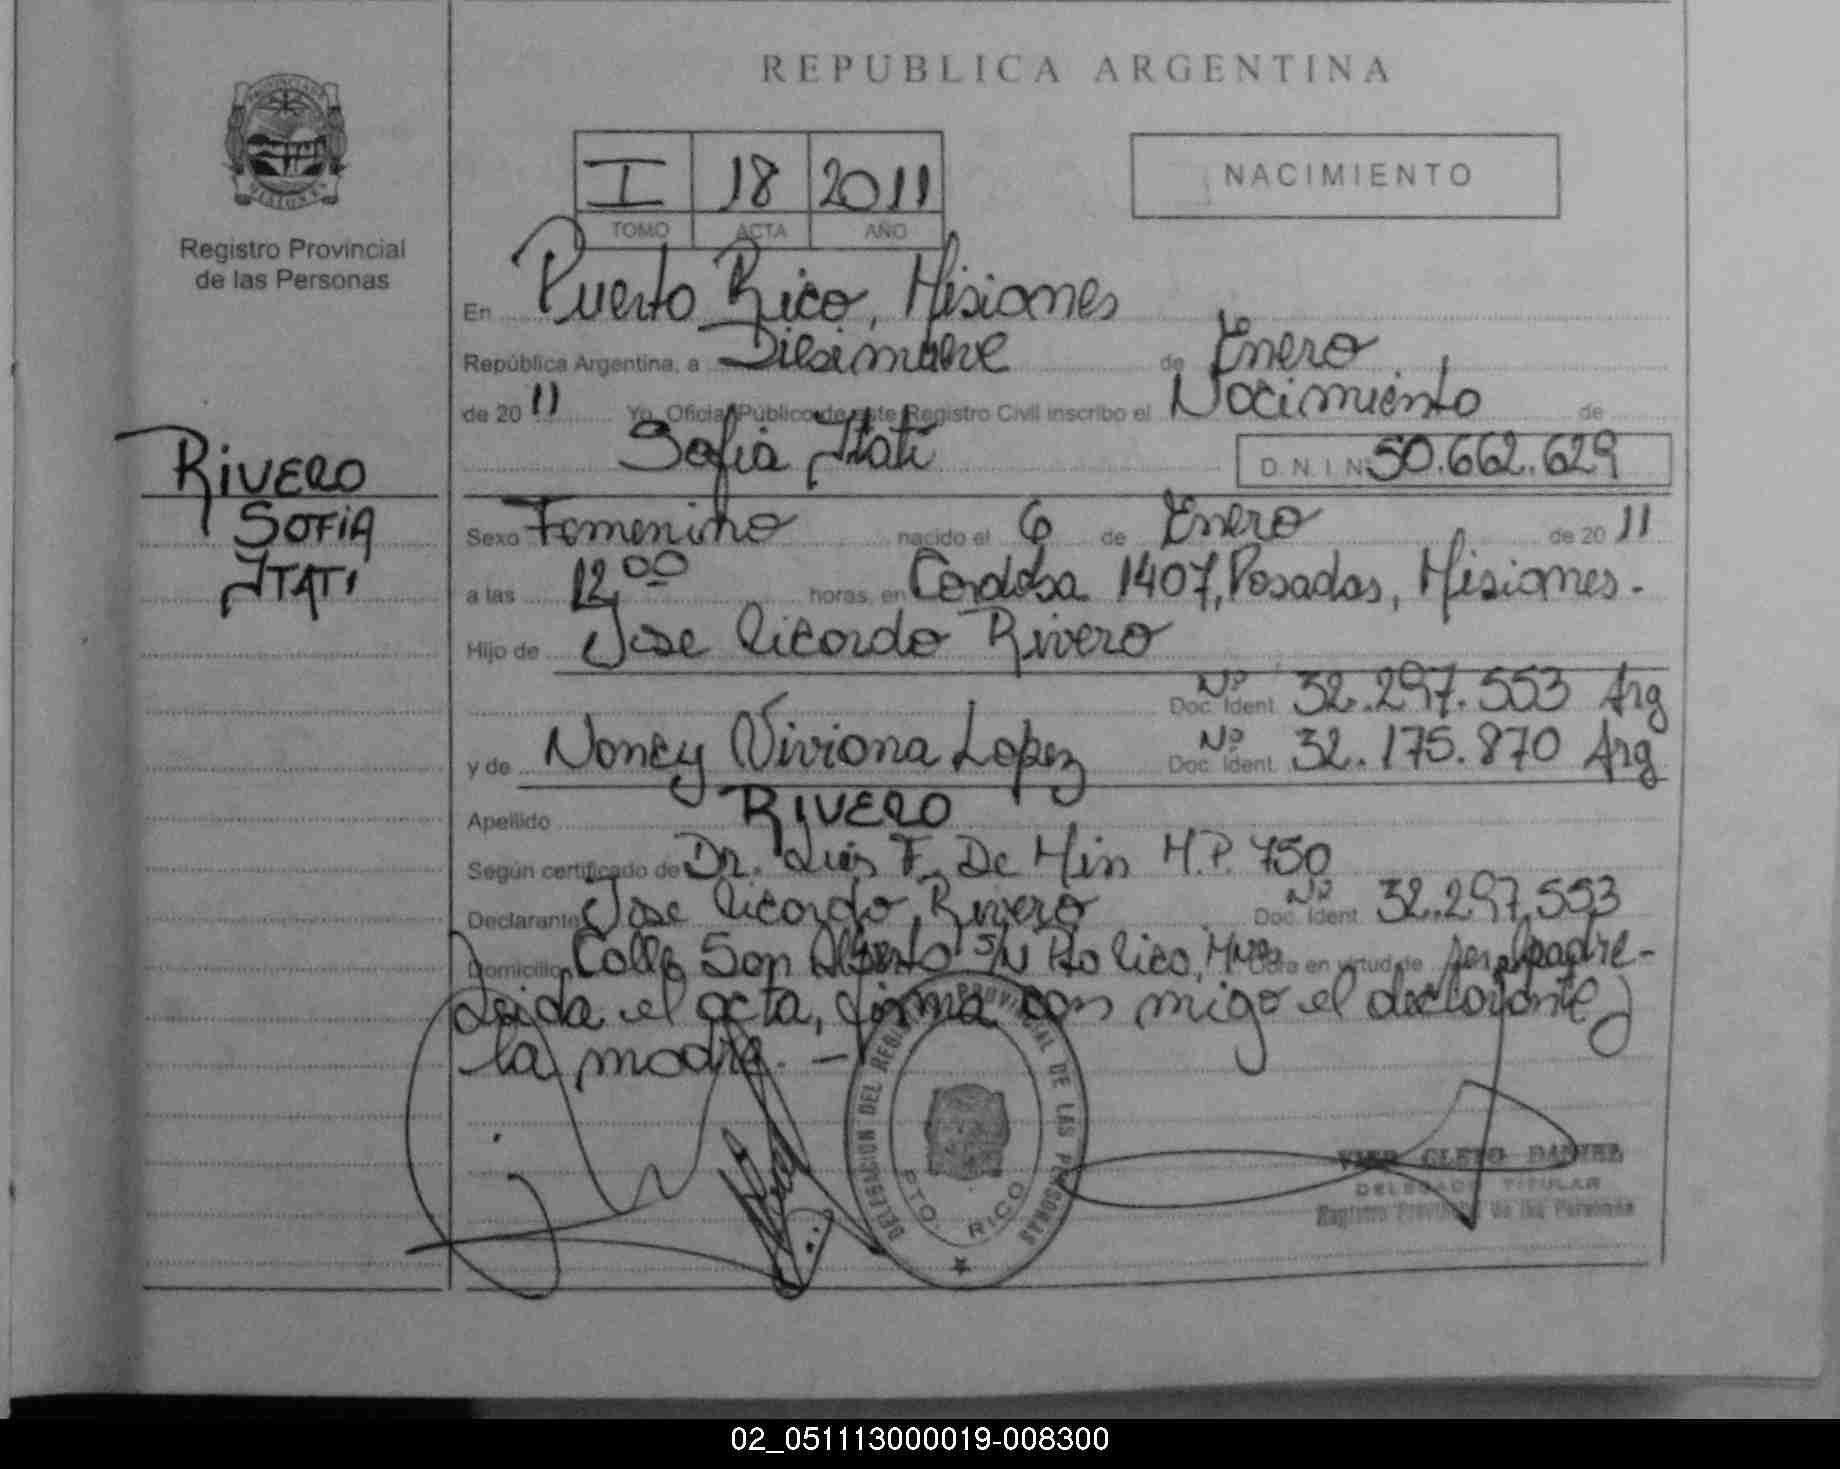 REPUBLICA ARGENTINA
PROVINCIA DE MISIONES
Registro Provincial
de las Personas
I 18 2011
TOMO ACTA AÑO
NACIMIENTO
En Puerto Rico, Misiones
República Argentina, a Diesinueve de Enero
de 2011 Yo, Oficial Público de este Registro Civil inscribo el Nacimiento de
Sofia Itatí D.N.I. N 50.662.629
RIVERO
SOFIA
ITATI
Sexo Femenino nacido el 6 de Enero de 2011
a las 12,00 horas, en Cordoba 1407, Posadas, Misiones.
Hijo de Jose Ricardo Rivero
Nº Doc. Ident. 32.297.553 Arg
y de Nancy Viviana Lopez Nº Doc. Ident. 32.175.870 Arg
Apellido RIVERO
Según certificado de Dr. Luis F. De Min M.P. 750
Declarante Jose Ricardo Rivero Nº Doc. Ident. 32.297.553
Domicilio Calle San Alberto S/N Pto Rico, Mnes Obra en virtud de ser padre-
Leida el acta, firma con migo el declarante y
la madre. -
DELEGACION DEL REGISTRO PROVINCIAL DE LAS PERSONAS
PTO. RICO
CLETO DANIEL
DELEGADO TITULAR
Registro Provincial de las Personas
02_051113000019-008300